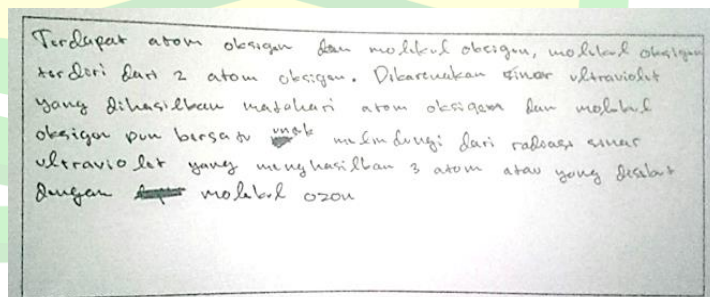 Terdapat atom oksigen dan molekul oksigen, molekul oksigen
terdiri dari 2 atom oksigen. Dikarenakan sinar ultraviolet
yang dihasilkan matahari atom oksigen dan molekul
oksigen pun bersatu untuk melindungi dari radiasi sinar
ultraviolet yang menghasilkan 3 atom atau yang disebut
dengan molekul ozon